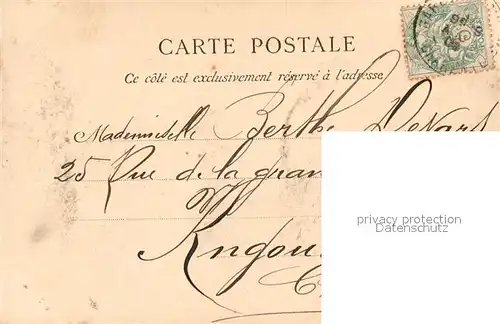 CARTE POSTALE
Ce côté est exclusivement réservé à l'adresse
Mademoiselle Berthe
25 Rue de la gran
Angou
privacy protection
Datenschutz